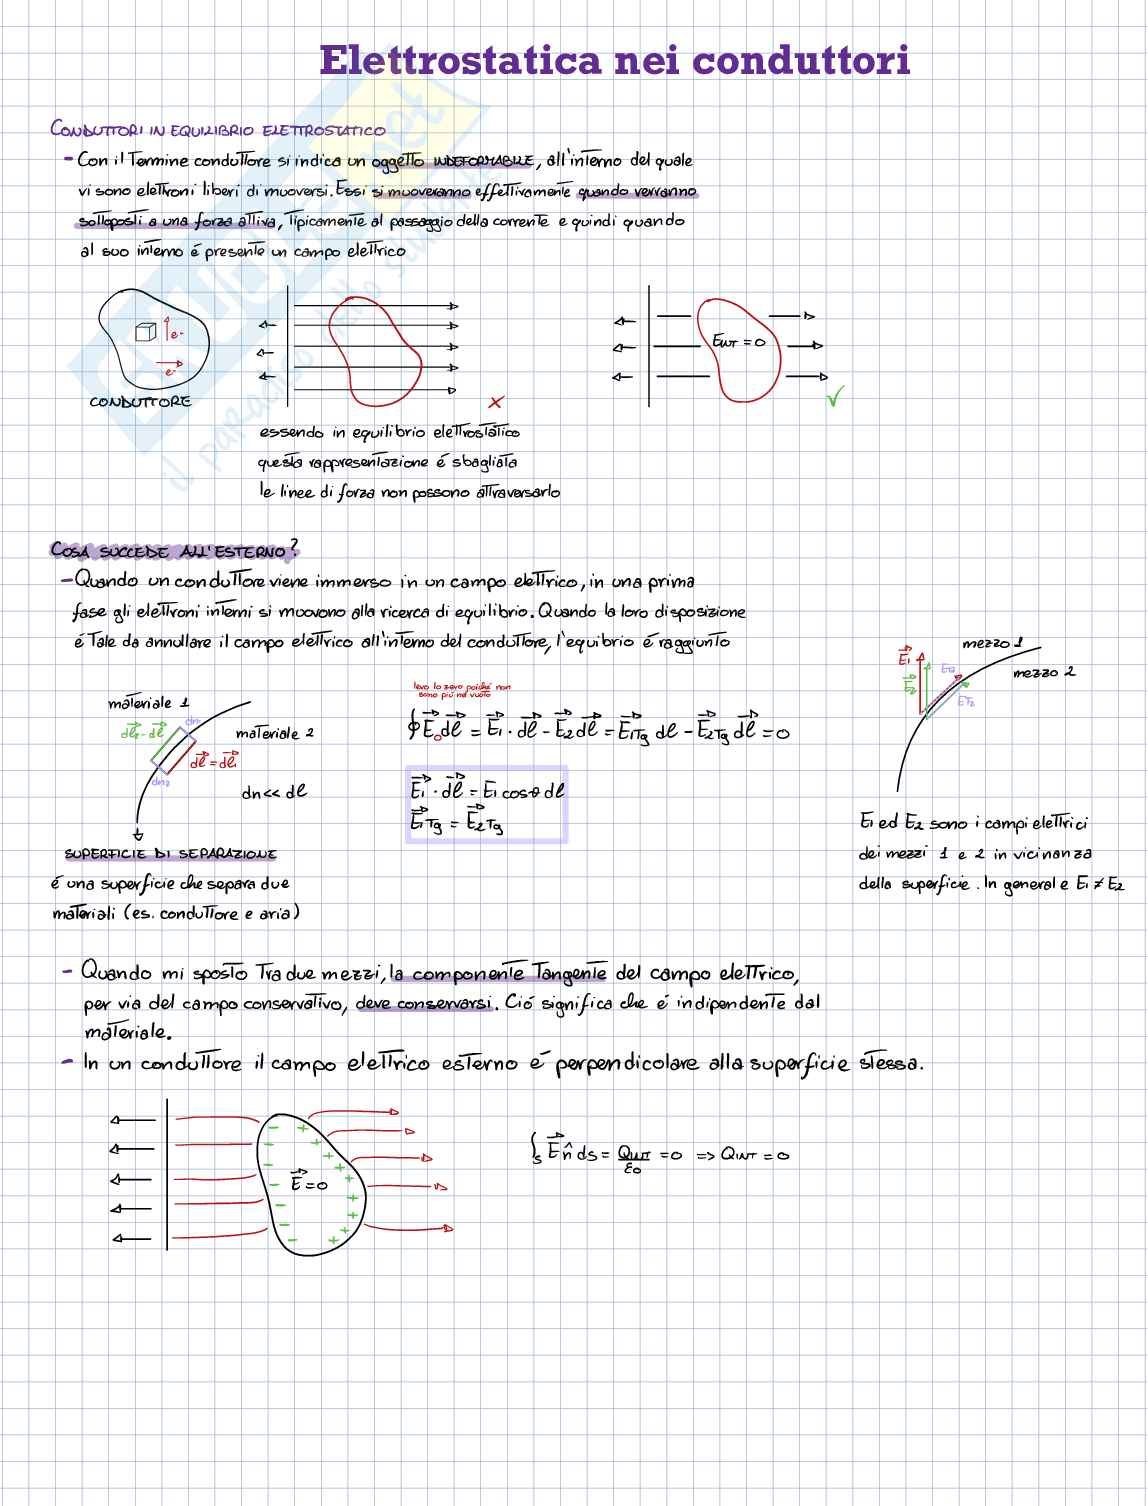 Elettrostatica nei conduttori
CONDUTTORI IN EQUILIBRIO ELETTROSTATICO
- Con il termine conduttore si indica un oggetto INDEFORMABILE, all'interno del quale
vi sono elettroni liberi di muoversi. Essi si muoveranno effettivamente quando verranno
sottoposti a una forza attiva, tipicamente al passaggio della corrente e quindi quando
al suo interno é presente un campo elettrico
e-
e-
CONDUTTORE
EINT = 0
essendo in equilibrio elettrostatico
questa rappresentazione é sbagliata
le linee di forza non possono attraversarlo
COSA SUCCEDE ALL'ESTERNO?
- Quando un conduttore viene immerso in un campo elettrico, in una prima
fase gli elettroni interni si muovono alla ricerca di equilibrio. Quando la loro disposizione
é tale da annullare il campo elettrico all'interno del conduttore, l'equibrio é raggiunto
materiale 1
materiale 2
dl2 - dl
dn1
dl = dl1
dn2
dn << dl
SUPERFICIE DI SEPARAZIONE
é una superficie che separa due
materiali (es. conduttore e aria)
levo lo zero poiché non
sono più nel vuoto
∮ E0 dl = E1 · dl - E2 dl = E1Tg dl - E2Tg dl = 0
E1 · dl = E1 cosθ dl
E1Tg = E2Tg
mezzo 1
mezzo 2
E1
E2
ET2
E1 ed E2 sono i campi elettrici
dei mezzi 1 e 2 in vicinanza
della superficie. In generale E1 ≠ E2
- Quando mi sposto tra due mezzi, la componente tangente del campo elettrico,
per via del campo conservativo, deve conservarsi. Ció significa che é indipendente dal
materiale.
- In un conduttore il campo elettrico esterno é perpendicolare alla superficie stessa.
E = 0
∫s E n̂ ds = QINT/ε0 = 0 => QINT = 0